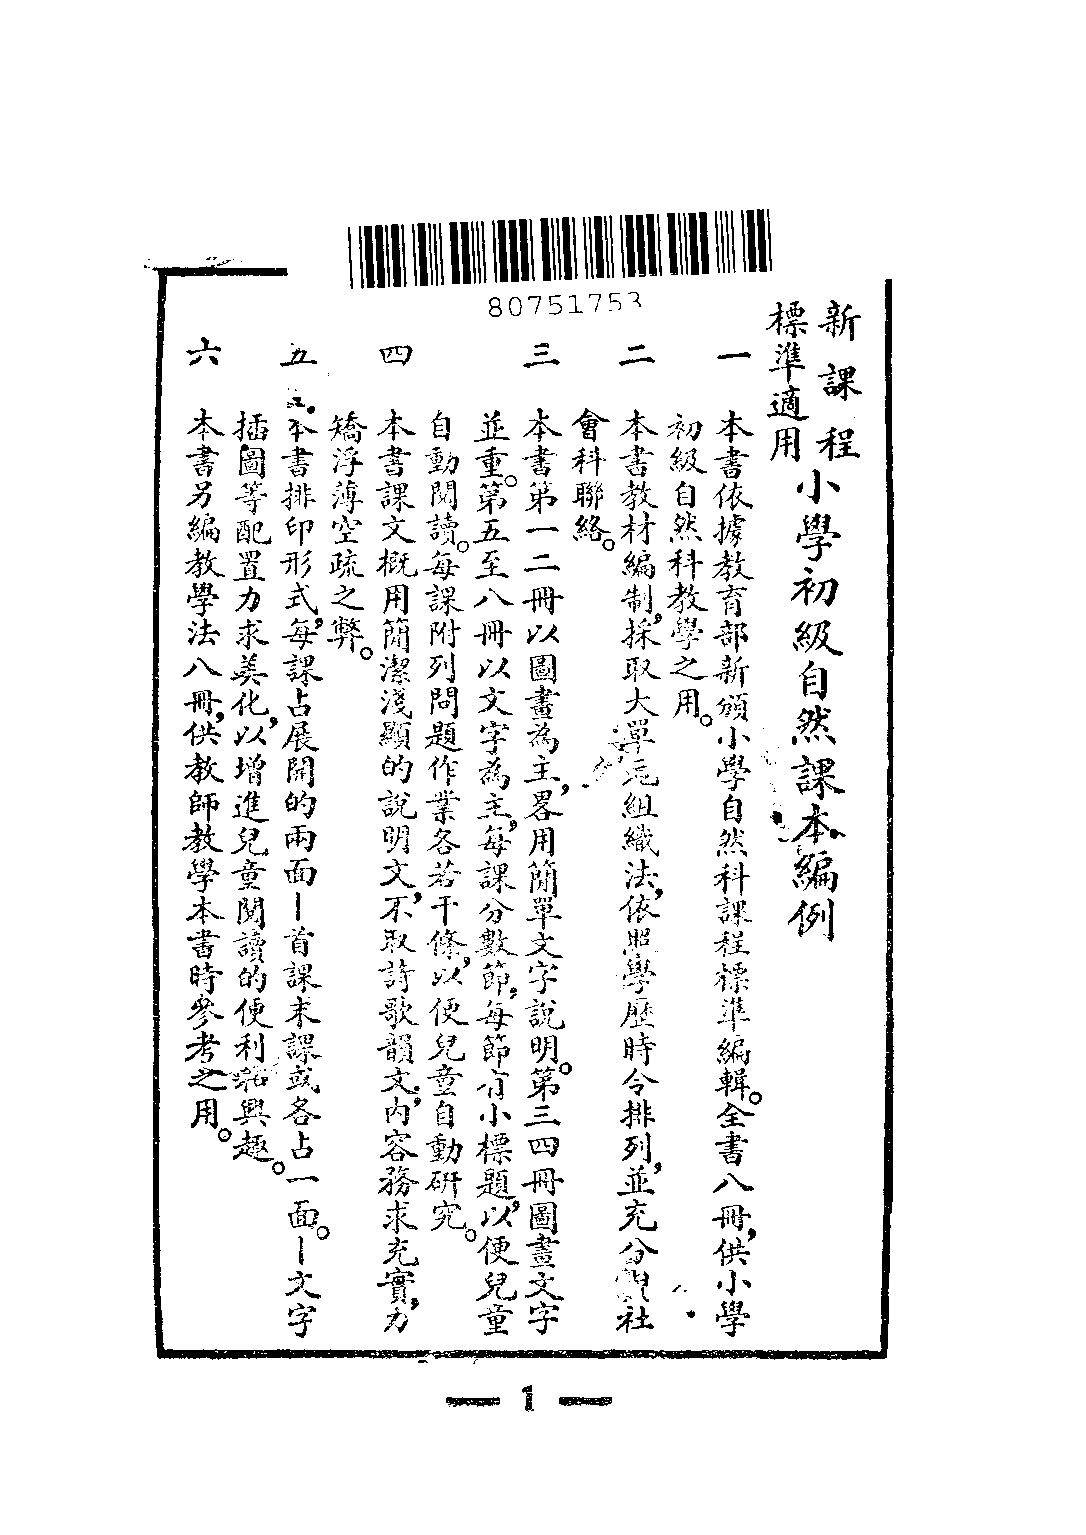 80751753
新課程
標準適用
小學初級自然課本編例
一 本書依據教育部新頒小學自然科課程標準編輯。全書八冊,供小學
初級自然科教學之用。
二 本書教材編制,採取大單元組織法,依照學歷時令排列,並充分與社
會科聯絡。
三 本書第一二冊以圖畫為主,畧用簡單文字說明。第三四冊圖畫文字
並重。第五至八冊以文字為主,每課分數節,每節有小標題,以便兒童
自動閱讀。每課附列問題作業各若干條,以便兒童自動研究。
四 本書課文概用簡潔淺顯的說明文,不取詩歌韻文,內容務求充實,力
矯浮薄空疏之弊。
五 本書排印形式,每課占展開的兩面—首課末課或各占一面。—文字
插圖等配置力求美化,以增進兒童閱讀的便利和興趣。
六 本書另編教學法八冊,供教師教學本書時參考之用。
— 1 —